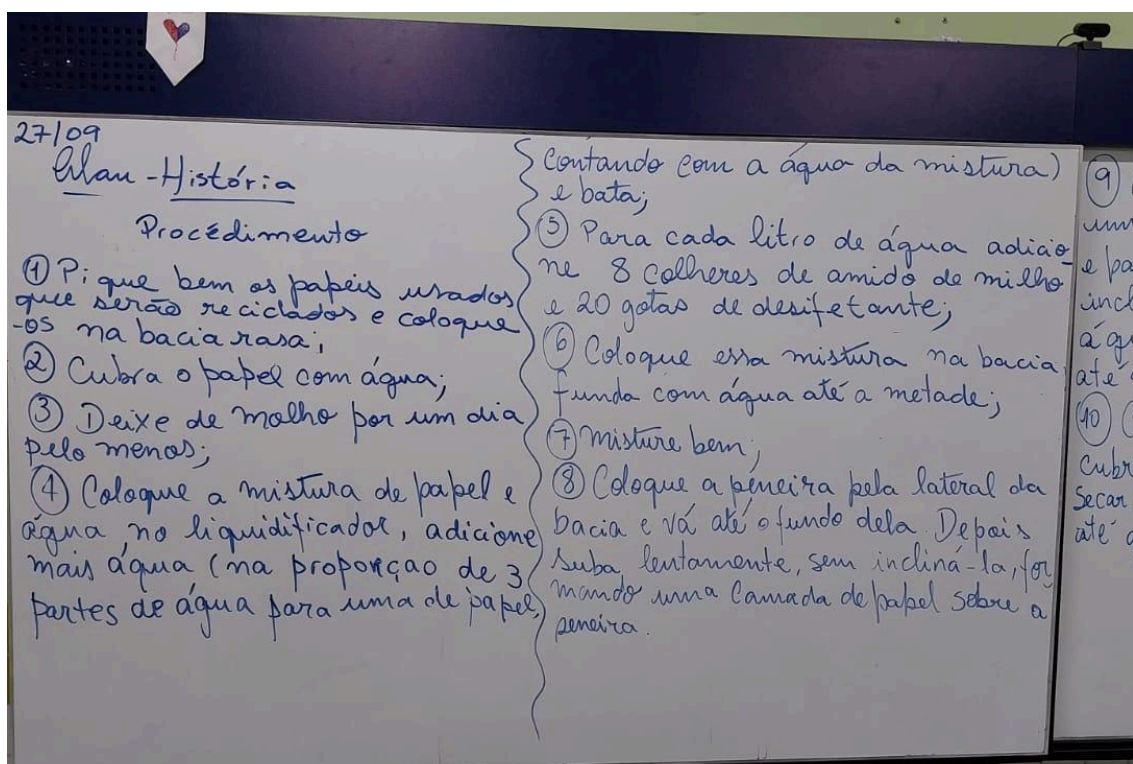 27/09
Alan - História
Procedimento
① Pique bem os papéis usados
que serão reciclados e coloque
-os na bacia rasa;
② Cubra o papel com água;
③ Deixe de molho por um dia
pelo menos;
④ Coloque a mistura de papel e
água no liquidificador, adicione
mais água (na proporçao de 3
partes de água para uma de papel,
contando com a água da mistura)
e bata;
⑤ Para cada litro de água adicio
ne 8 colheres de amido de milho
e 20 gotas de desifetante;
⑥ Coloque essa mistura na bacia
funda com água até a metade;
⑦ misture bem;
⑧ Coloque a peneira pela lateral da
bacia e vá até o fundo dela. Depois
suba lentamente, sem incliná-la, for
mando uma camada de papel sobre a
peneira.
⑨
e
até
⑩
secar
até